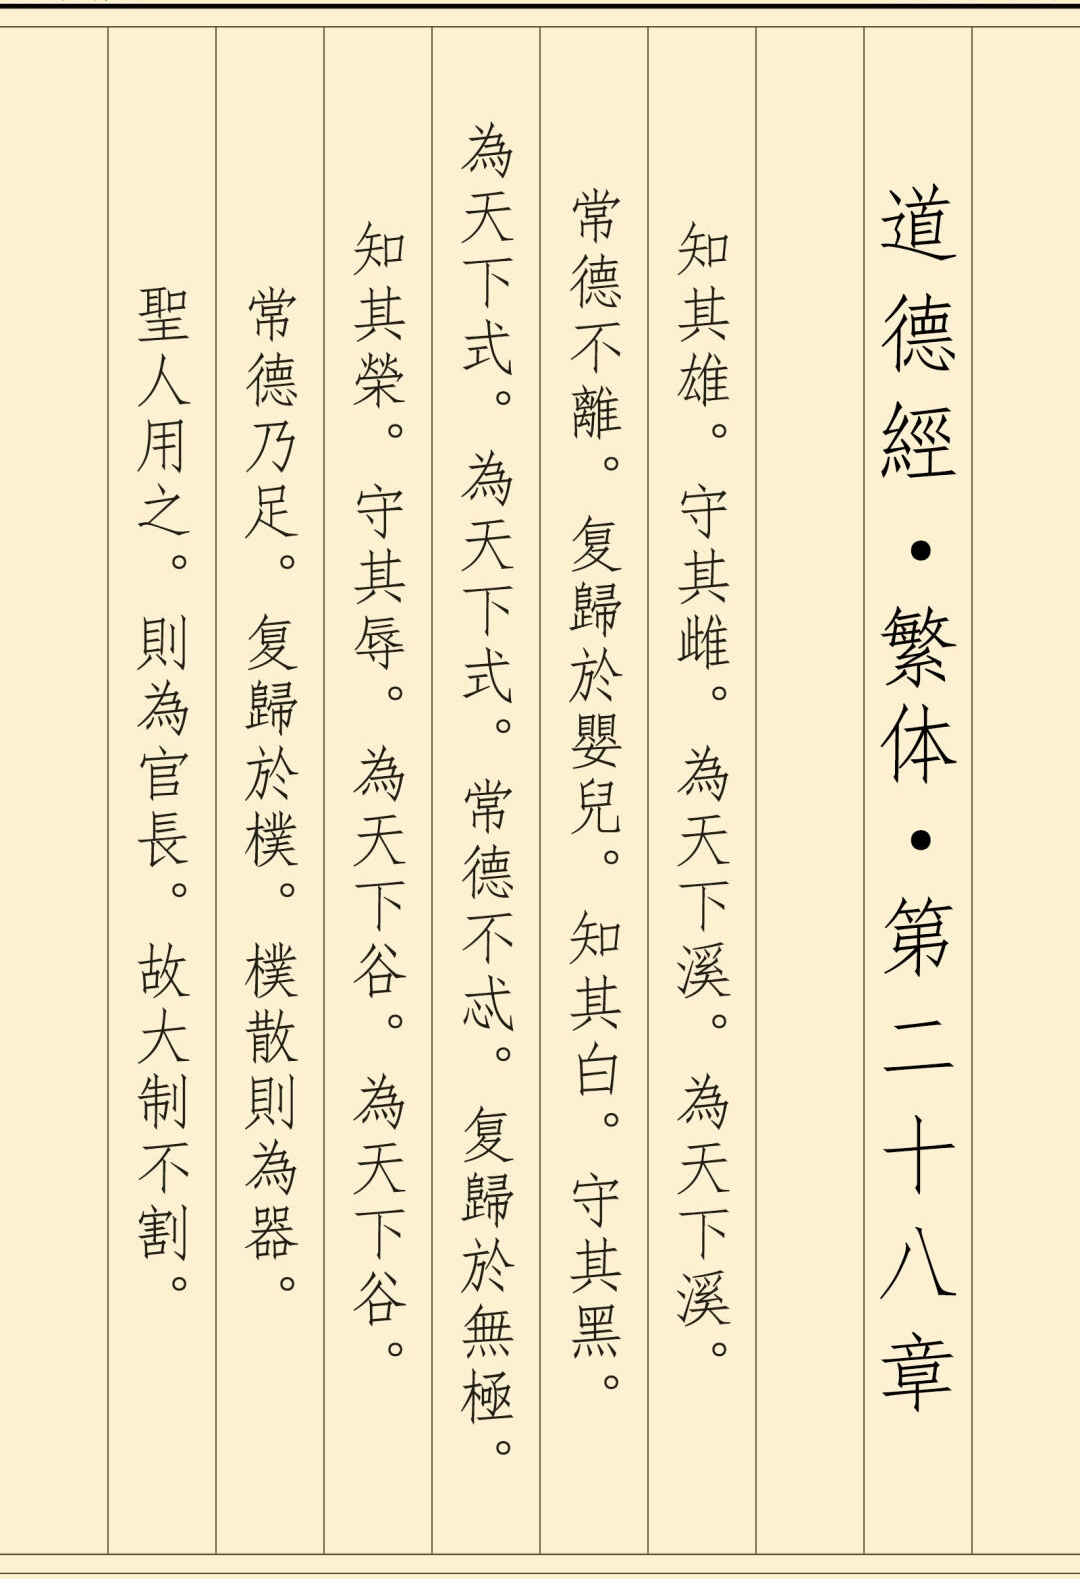 道德經·繁体·第二十八章
知其雄。守其雌。為天下溪。為天下溪。
常德不離。复歸於嬰兒。知其白。守其黑。
為天下式。為天下式。常德不忒。复歸於無極。
知其榮。守其辱。為天下谷。為天下谷。
常德乃足。复歸於樸。樸散則為器。
聖人用之。則為官長。故大制不割。